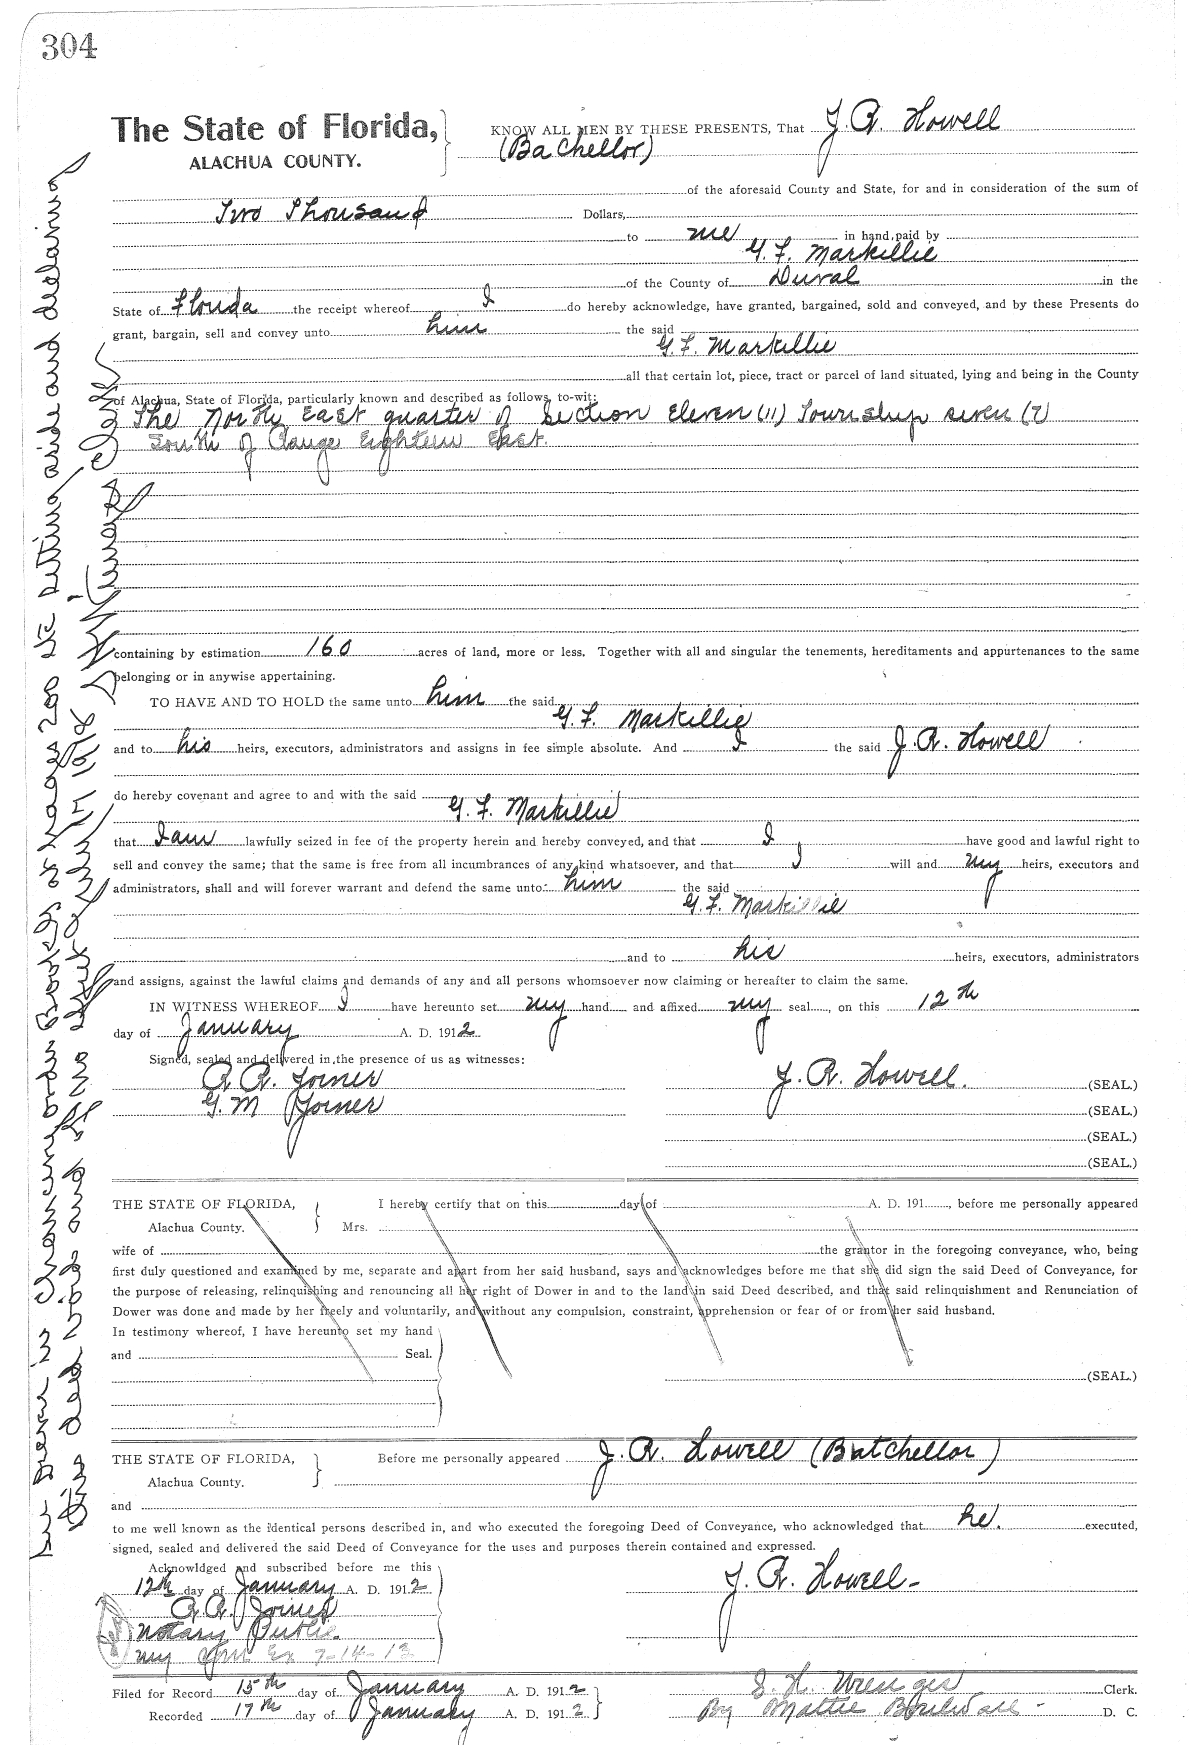 304
The State of Florida, KNOW ALL MEN BY THESE PRESENTS, That J. R. Howell
ALACHUA COUNTY. (Bachellor)
of the aforesaid County and State, for and in consideration of the sum of
Two Thousand Dollars,
to me in hand paid by
G. F. Markillie
of the County of Duval in the
State of Florida the receipt whereof I do hereby acknowledge, have granted, bargained, sold and conveyed, and by these Presents do
grant, bargain, sell and convey unto him the said
G. F. Markillie
all that certain lot, piece, tract or parcel of land situated, lying and being in the County
of Alachua, State of Florida, particularly known and described as follows, to-wit:
The North East quarter of Section Eleven (11) Township seven (7)
South of Range Eighteen East.
containing by estimation 160 acres of land, more or less. Together with all and singular the tenements, hereditaments and appurtenances to the same
belonging or in anywise appertaining.
TO HAVE AND TO HOLD the same unto him the said
G. F. Markillie
and to his heirs, executors, administrators and assigns in fee simple absolute. And I the said J. R. Howell
do hereby covenant and agree to and with the said
G. F. Markillie
that I am lawfully seized in fee of the property herein and hereby conveyed, and that I have good and lawful right to
sell and convey the same; that the same is free from all incumbrances of any kind whatsoever, and that I will and my heirs, executors and
administrators, shall and will forever warrant and defend the same unto him the said
G. F. Markillie
and to his heirs, executors, administrators
and assigns, against the lawful claims and demands of any and all persons whomsoever now claiming or hereafter to claim the same.
IN WITNESS WHEREOF I have hereunto set my hand and affixed my seal, on this 12th
day of January A. D. 1912
Signed, sealed and delivered in the presence of us as witnesses:
R. R. Joiner J. R. Howell. (SEAL.)
G. M Joiner (SEAL.)
(SEAL.)
(SEAL.)
THE STATE OF FLORIDA, I hereby certify that on this day of A. D. 191 , before me personally appeared
Alachua County. Mrs.
wife of the grantor in the foregoing conveyance, who, being
first duly questioned and examined by me, separate and apart from her said husband, says and acknowledges before me that she did sign the said Deed of Conveyance, for
the purpose of releasing, relinquishing and renouncing all her right of Dower in and to the land in said Deed described, and that said relinquishment and Renunciation of
Dower was done and made by her freely and voluntarily, and without any compulsion, constraint, apprehension or fear of or from her said husband.
In testimony whereof, I have hereunto set my hand
and Seal.
(SEAL.)
THE STATE OF FLORIDA, Before me personally appeared J. R. Howell (Batchellor)
Alachua County.
and
to me well known as the identical persons described in, and who executed the foregoing Deed of Conveyance, who acknowledged that he. executed,
signed, sealed and delivered the said Deed of Conveyance for the uses and purposes therein contained and expressed.
Acknowldged and subscribed before me this
12th day of January A. D. 1912 J. R. Howell
R. R. Joiner
Notary Public.
My Com Ex 7-14-13
Filed for Record 15th day of January A. D. 1912 S. H. Wienges Clerk.
Recorded 17th day of January A. D. 1912 By Mattie D. C.
See Decree in Chancery order Book 3 page 200 etc setting aside and declaring
this deed void and of no July 17 1918 S H Wienges Clerk